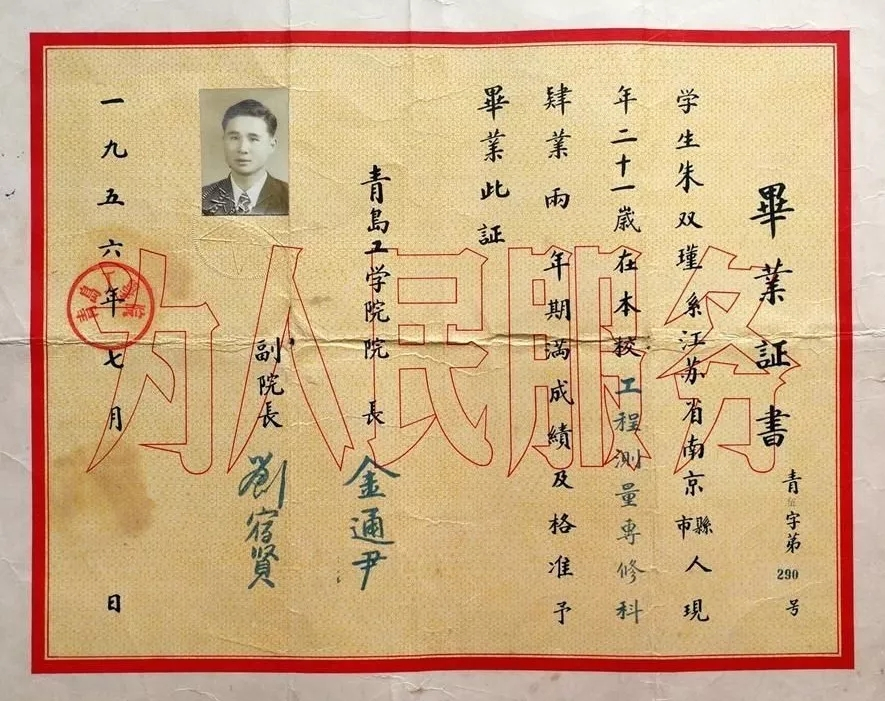 畢業証書
青 字第290号
学生朱双瑾系江苏省南京市縣人現
年二十一歲在本校工程测量専修科
肄業兩年期满成績及格准予
畢業此証
青島工学院院長 金通尹
副院長 劉宿賢
一九五六年七月 日
为人民服务